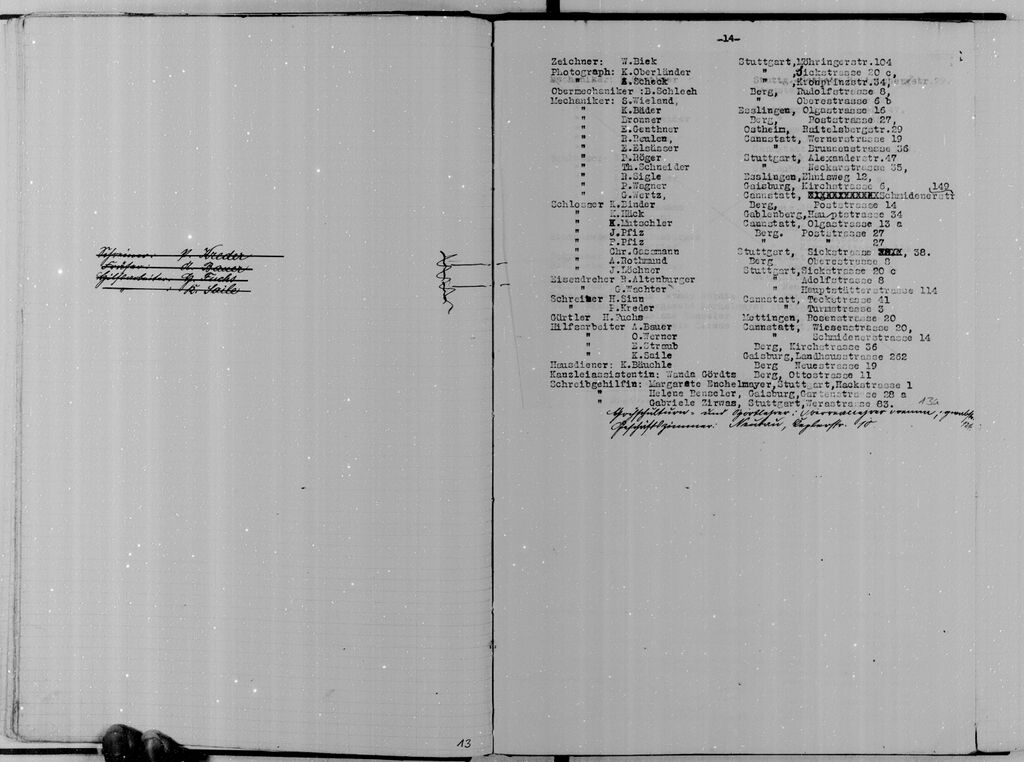 Schreiner P. Kreder
Gürtler A. Bauer
Hilfsarbeiter G. Fuchs
" K. Saile
13
-14-
Zeichner: W.Biek Stuttgart,Möhringerstr.104
Photograph: K.Oberländer " ,Sickstrasse 20 c,
" A.Scheck " ,Kronprinzstr.34,
Obermechaniker :B.Schlech Berg, Rudolfstrasse 8,
Mechaniker: S.Wieland, " Oberestrasse 6 b
" K.Bäder Esslingen, Olgastrasse 16
" Bronner Berg, Poststrasse 27,
" E.Genthner Ostheim, Raitelsbergstr.29
" R.Paulen, Cannstatt, Wernerstrasse 19
" E.Elsässer " Brunnenstrasse 36
" P.Röger Stuttgart, Alexanderstr.47
" Th.Schneider " Neckarstrasse 35,
" R.Sigle Esslingen,Ebnisweg 12,
" P.Wagner Gaisburg, Kirchstrasse 6, 149
" G.Wertz, Cannstatt, Schmidenerstr
Schlosser K.Binder Berg, Poststrasse 14
" K.Hück Gablenberg,Hauptstrasse 34
" K.Lutschler Cannstatt, Olgastrasse 13 a
" J.Pfiz Berg. Poststrasse 27
" P.Pfiz " " 27
" Chr.Gassmann Stuttgart, Sickstrasse 38.
" A.Rothmund Berg Oberestrasse 8
" J.Löchner Stuttgart,Sickstrasse 20 c
Eisendreher R.Altenburger " Adolfstrasse 8
" G.Wachter " Hauptstätterstrasse 114
Schreiner H.Sinn Cannstatt, Teckstrasse 41
" P.Kreder " Turmstrasse 3
Gürtler H.Fuchs Mettingen, Rosenstrasse 20
Hilfsarbeiter A.Bauer Cannstatt, Wiesenstrasse 20,
" O.Werner " Schmidenerstrasse 14
" E.Straub Berg, Kirchstrasse 36
" K.Saile Gaisburg,Landhausstrasse 262
Hausdiener: K.Bäuchle Berg Neuestrasse 19
Kanzleiassistentin: Wanda Gördts Berg, Ottostrasse 11
Schreibgehilfin: Margarete Enchelmayer,Stuttgart,Hackstrasse 1
" Helene Benseler, Gaisburg,Gartenstrasse 28 a
" Gabriele Zirwas, Stuttgart,Werastrasse 83. 13a
Hochschulturn- und Sportlehrer:
Geschäftszimmer: Neubau, Keplerstr. 10